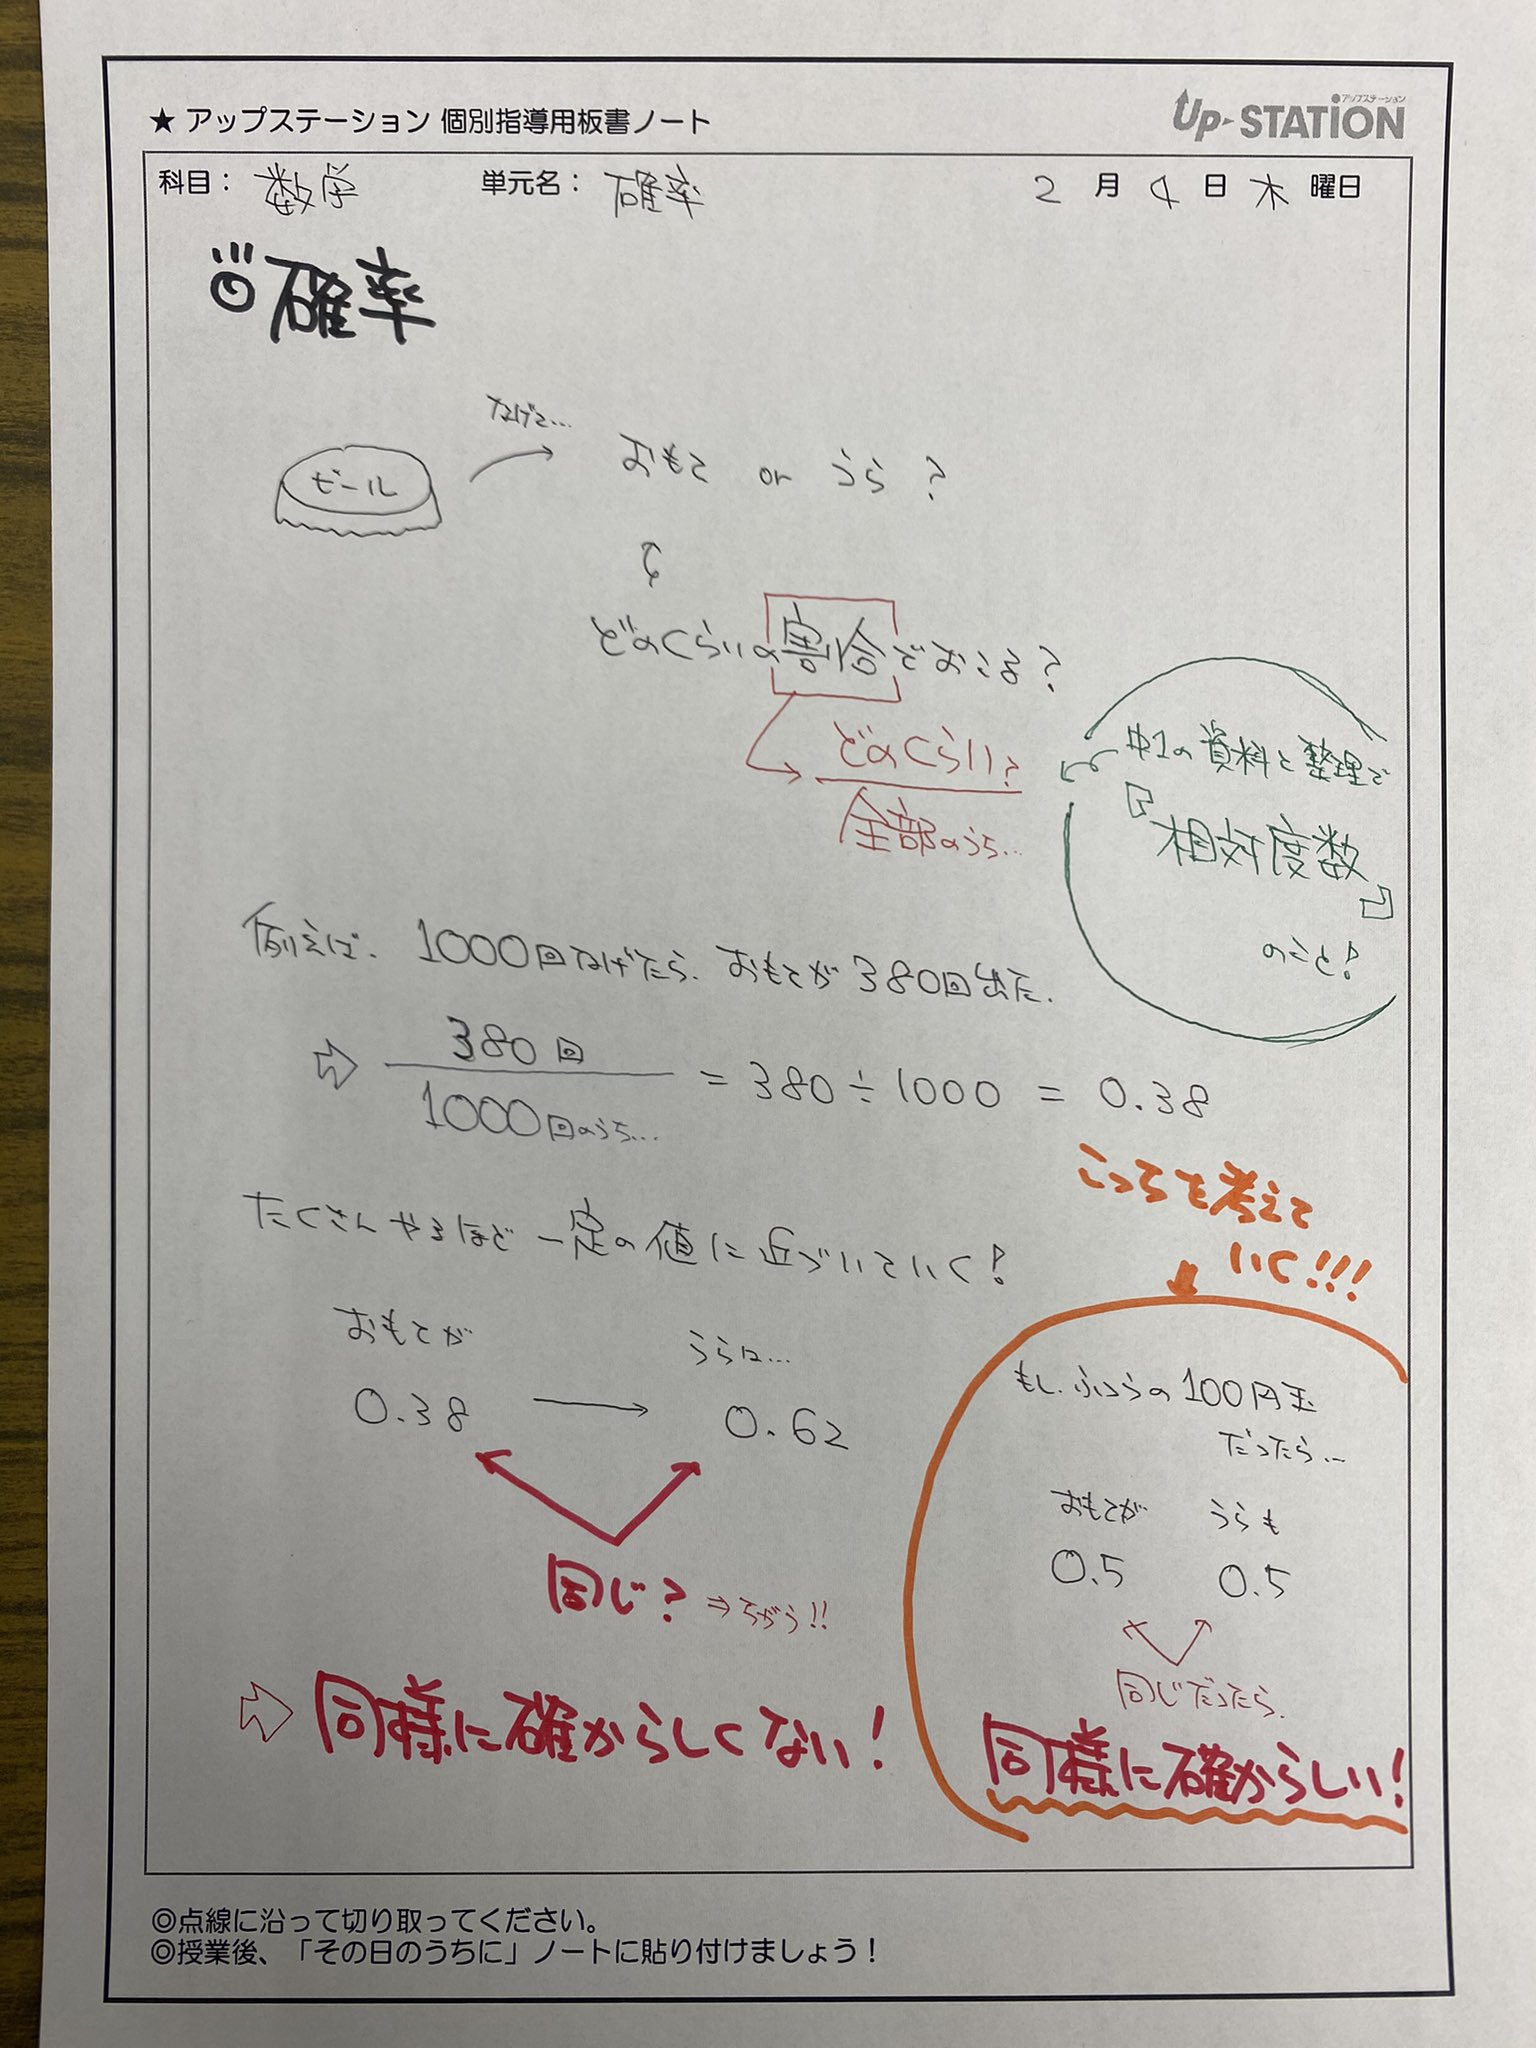 ★ アップステーション 個別指導用板書ノート
アップステーション
Up-STATION
科目: 数学 単元名: 確率 2 月 4 日 木 曜日
◎確率
なげて…
ビール
おもて or うら ?
どのくらいの割合でおこる?
どのくらい?
全部のうち…
中1の資料と整理で
『相対度数』
のこと!
例えば、1000回なげたら、おもてが380回出た.
380回
1000回のうち…
= 380 ÷ 1000 = 0.38
こっちを考えて
いく!!!
たくさんやるほど一定の値に近づいていく!
おもてが うらは…
0.38 → 0.62
同じ? ⇒ちがう!!
⇨ 同様に確からしくない!
もし、ふつうの100円玉
だったら…
おもてが うらも
0.5 0.5
同じだったら、
同様に確からしい!
◎点線に沿って切り取ってください。
◎授業後、「その日のうちに」ノートに貼り付けましょう!